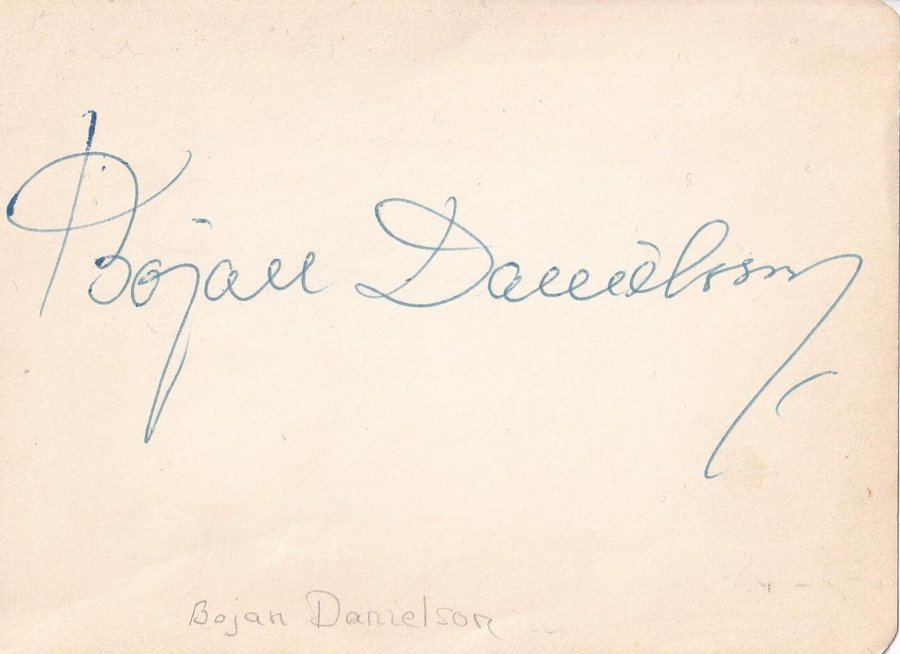 Bojan Danielsson
Bojan Danielson